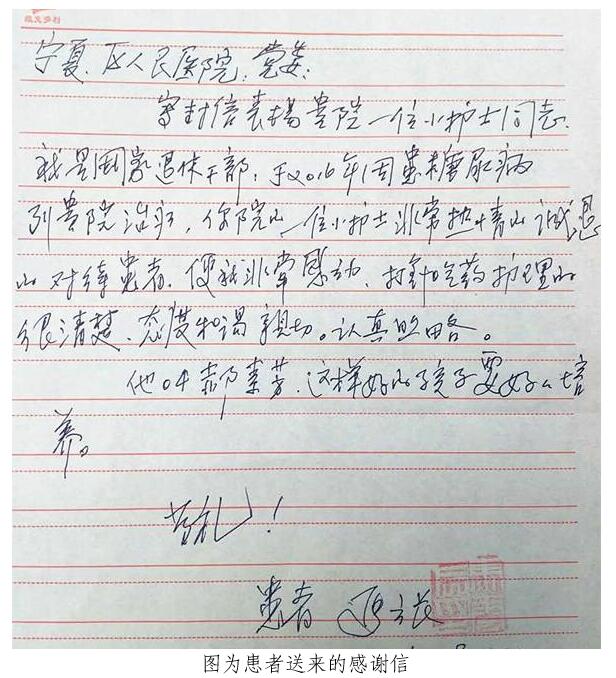 宁夏、区人民医院、党委:
写封信表扬贵院一位小护士同志.
我是国家退休干部,于2016年因患糖尿病
到贵院治疗,你院的一位小护士非常热情的诚恳
的对待患者.使我非常感动、打针吃药护理的
很清楚、态度和谒親切。认真
他叫郝素芳.这样好的孩子要好好培
养。
敬礼!
患者
图为患者送来的感谢信